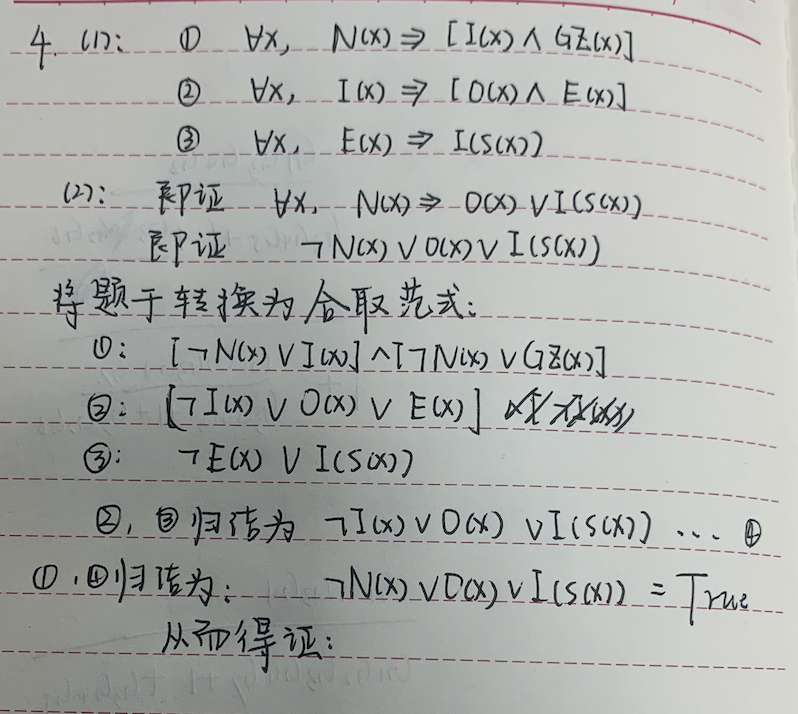 4. (1): ① ∀x, N(x) ⇒ [I(x) ∧ GZ(x)]
② ∀x, I(x) ⇒ [O(x) ∧ E(x)]
③ ∀x, E(x) ⇒ I(S(x))
(2): 即证 ∀x, N(x) ⇒ O(x) ∨ I(S(x))
即证 ¬N(x) ∨ O(x) ∨ I(S(x))
将题干转换为合取范式:
①: [¬N(x) ∨ I(x)] ∧ [¬N(x) ∨ GZ(x)]
②: [¬I(x) ∨ O(x) ∨ E(x)]
③: ¬E(x) ∨ I(S(x))
②, ③归结为 ¬I(x) ∨ O(x) ∨ I(S(x)) ... ④
①, ④归结为: ¬N(x) ∨ O(x) ∨ I(S(x)) = True
从而得证: